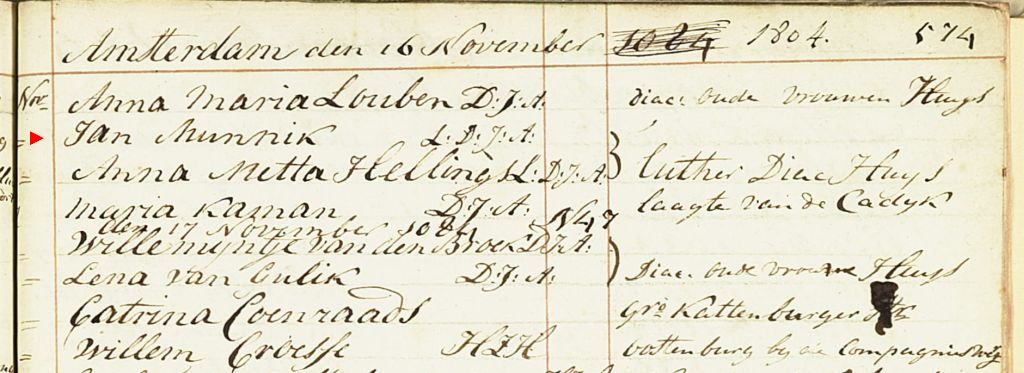 Amsterdam den 16 November 1804. 574
Nov. Anna Maria Louben D: J: A: diac: oude vrouwen Huys
Jan Munnik L: D: J: A:
Anna Metta Hellings L: D: J: A: luther Diac Huys
Maria Kaman D: J: A: N47 laagte van de Cadyk
den 17 November
Willemyntje van den Broek D: J: A:
Lena van Gulik D: J: A: Diac oude vrouwe Huys
Catrina Coenraads Gro Kattenburger
Willem Croesse HZH oostenburg by de Compagnies